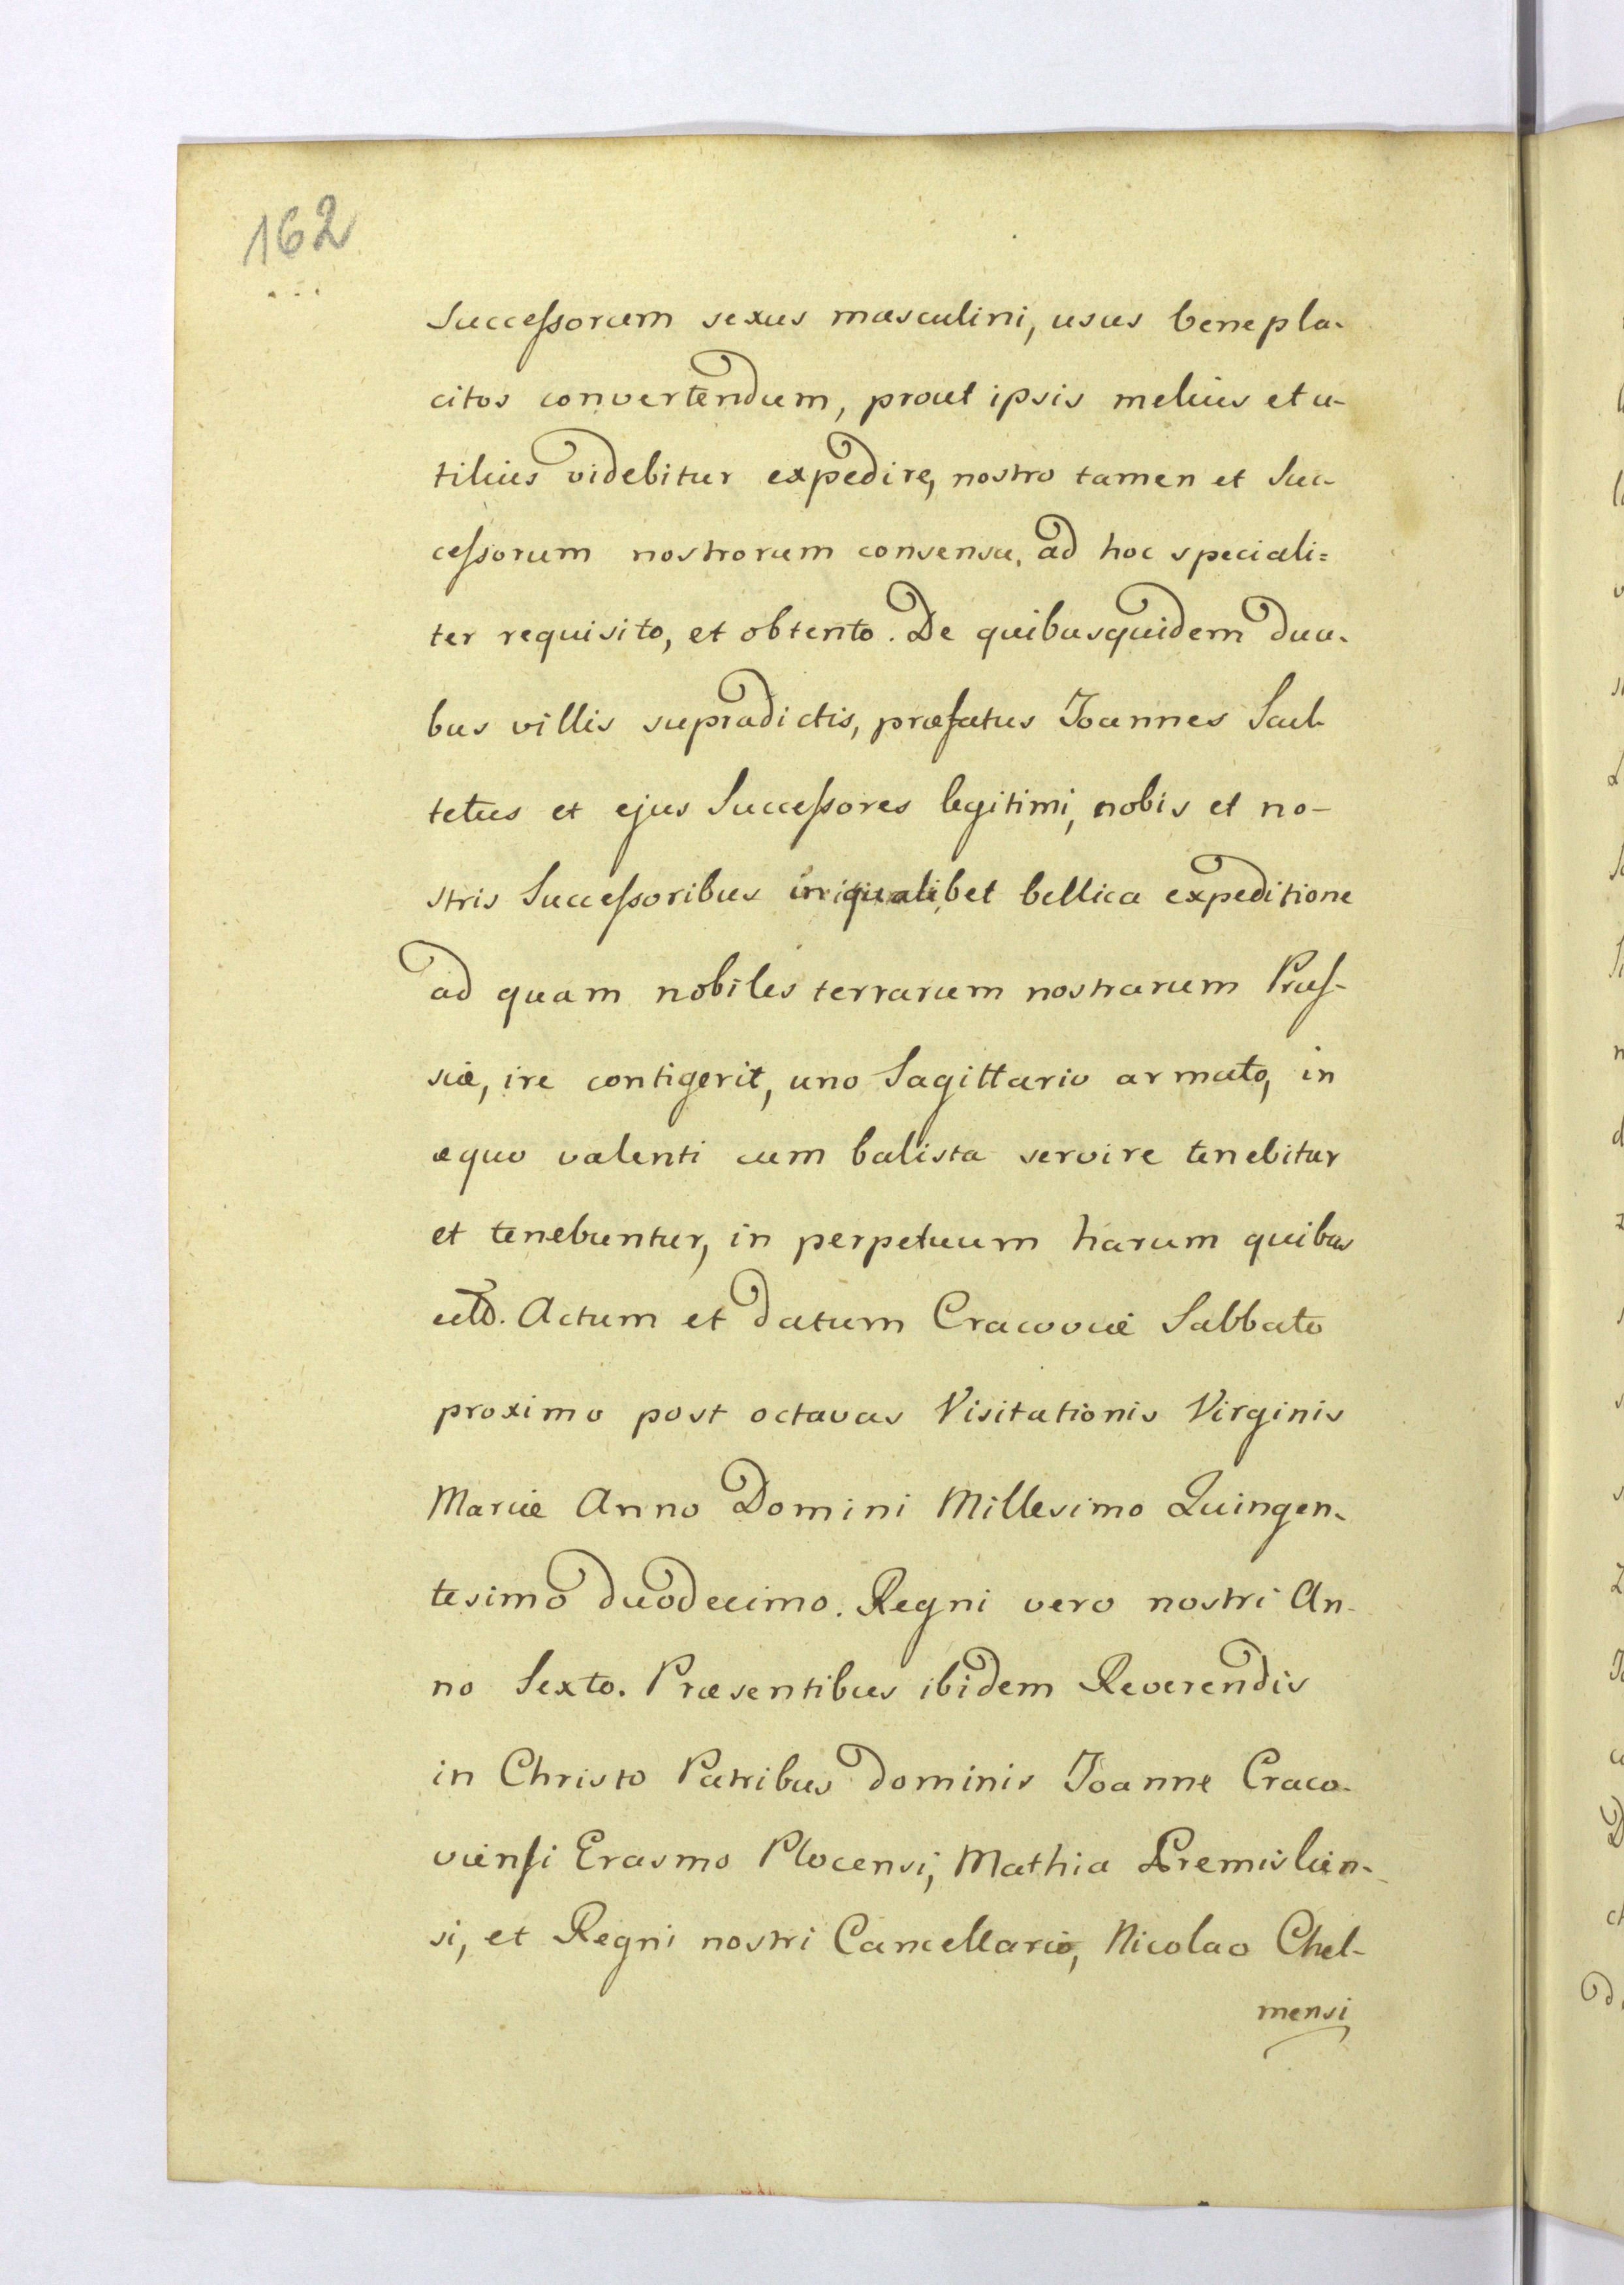 162
Succeſsorum sexus masculini, usus benepla-
citos convertendum, prout ipsis melius et u-
tilius videbitur expedire, nostro tamen et Suc-
ceſsorum nostrorum consensu, ad hoc speciali=
ter requisito, et obtento. De quibusquidem dua-
bus villis supradictis, præfatus Joannes Scul-
tetus et ejus Succeſsores legitimi, nobis et no-
stris Succeſsoribus in qualibet bellica expeditione
ad quam nobiles terrarum nostrarum Pruſ-
siæ, ire contigerit, uno Sagittario armato, in
equo valenti cum balista servire tenebitur
et tenebuntur, in perpetuum harum quibus
Actum et datum Cracoviæ Sabbato
proximo post octavas Visitationis Virginis
Mariæ Anno Domini Millesimo Quingen-
tesimo duodecimo. Regni vero nostri An-
no Sexto. Præsentibus ibidem Reverendis
in Christo Patribus dominis Joanne Craco-
vienſi Erasmo Plocensi, Mathia Premislien-
si, et Regni nostri Cancellario, Nicolao Chel-
mensi